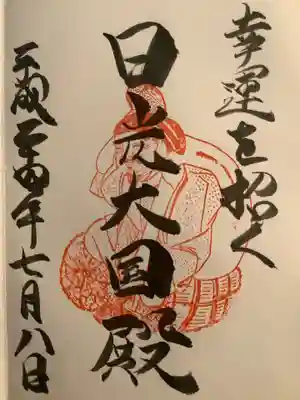 幸運を招く
日光大国殿
平成二十四年七月八日